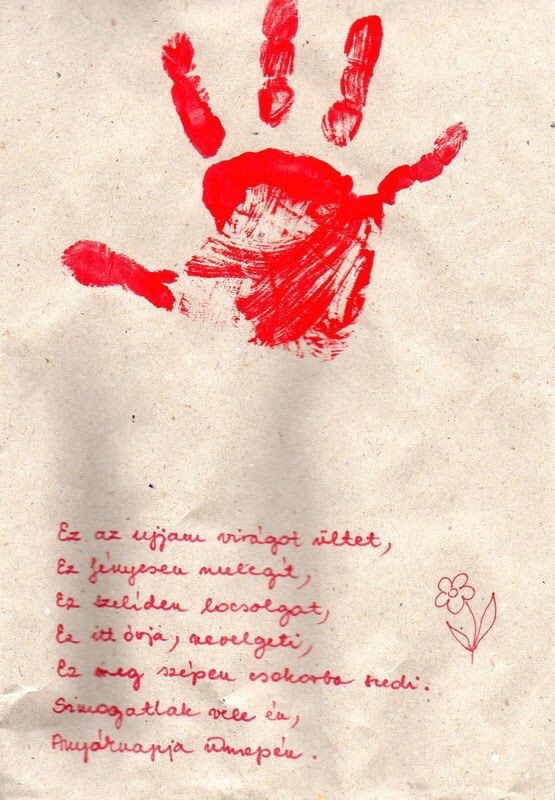 Ez az ujjam virágot ültet,
Ez fényesen melegít,
Ez szelíden locsolgat,
Ez itt óvja, nevelgeti,
Ez meg szépen csokorba szedi.
Simogatlak vele én,
Anyárnapja ünnepén.